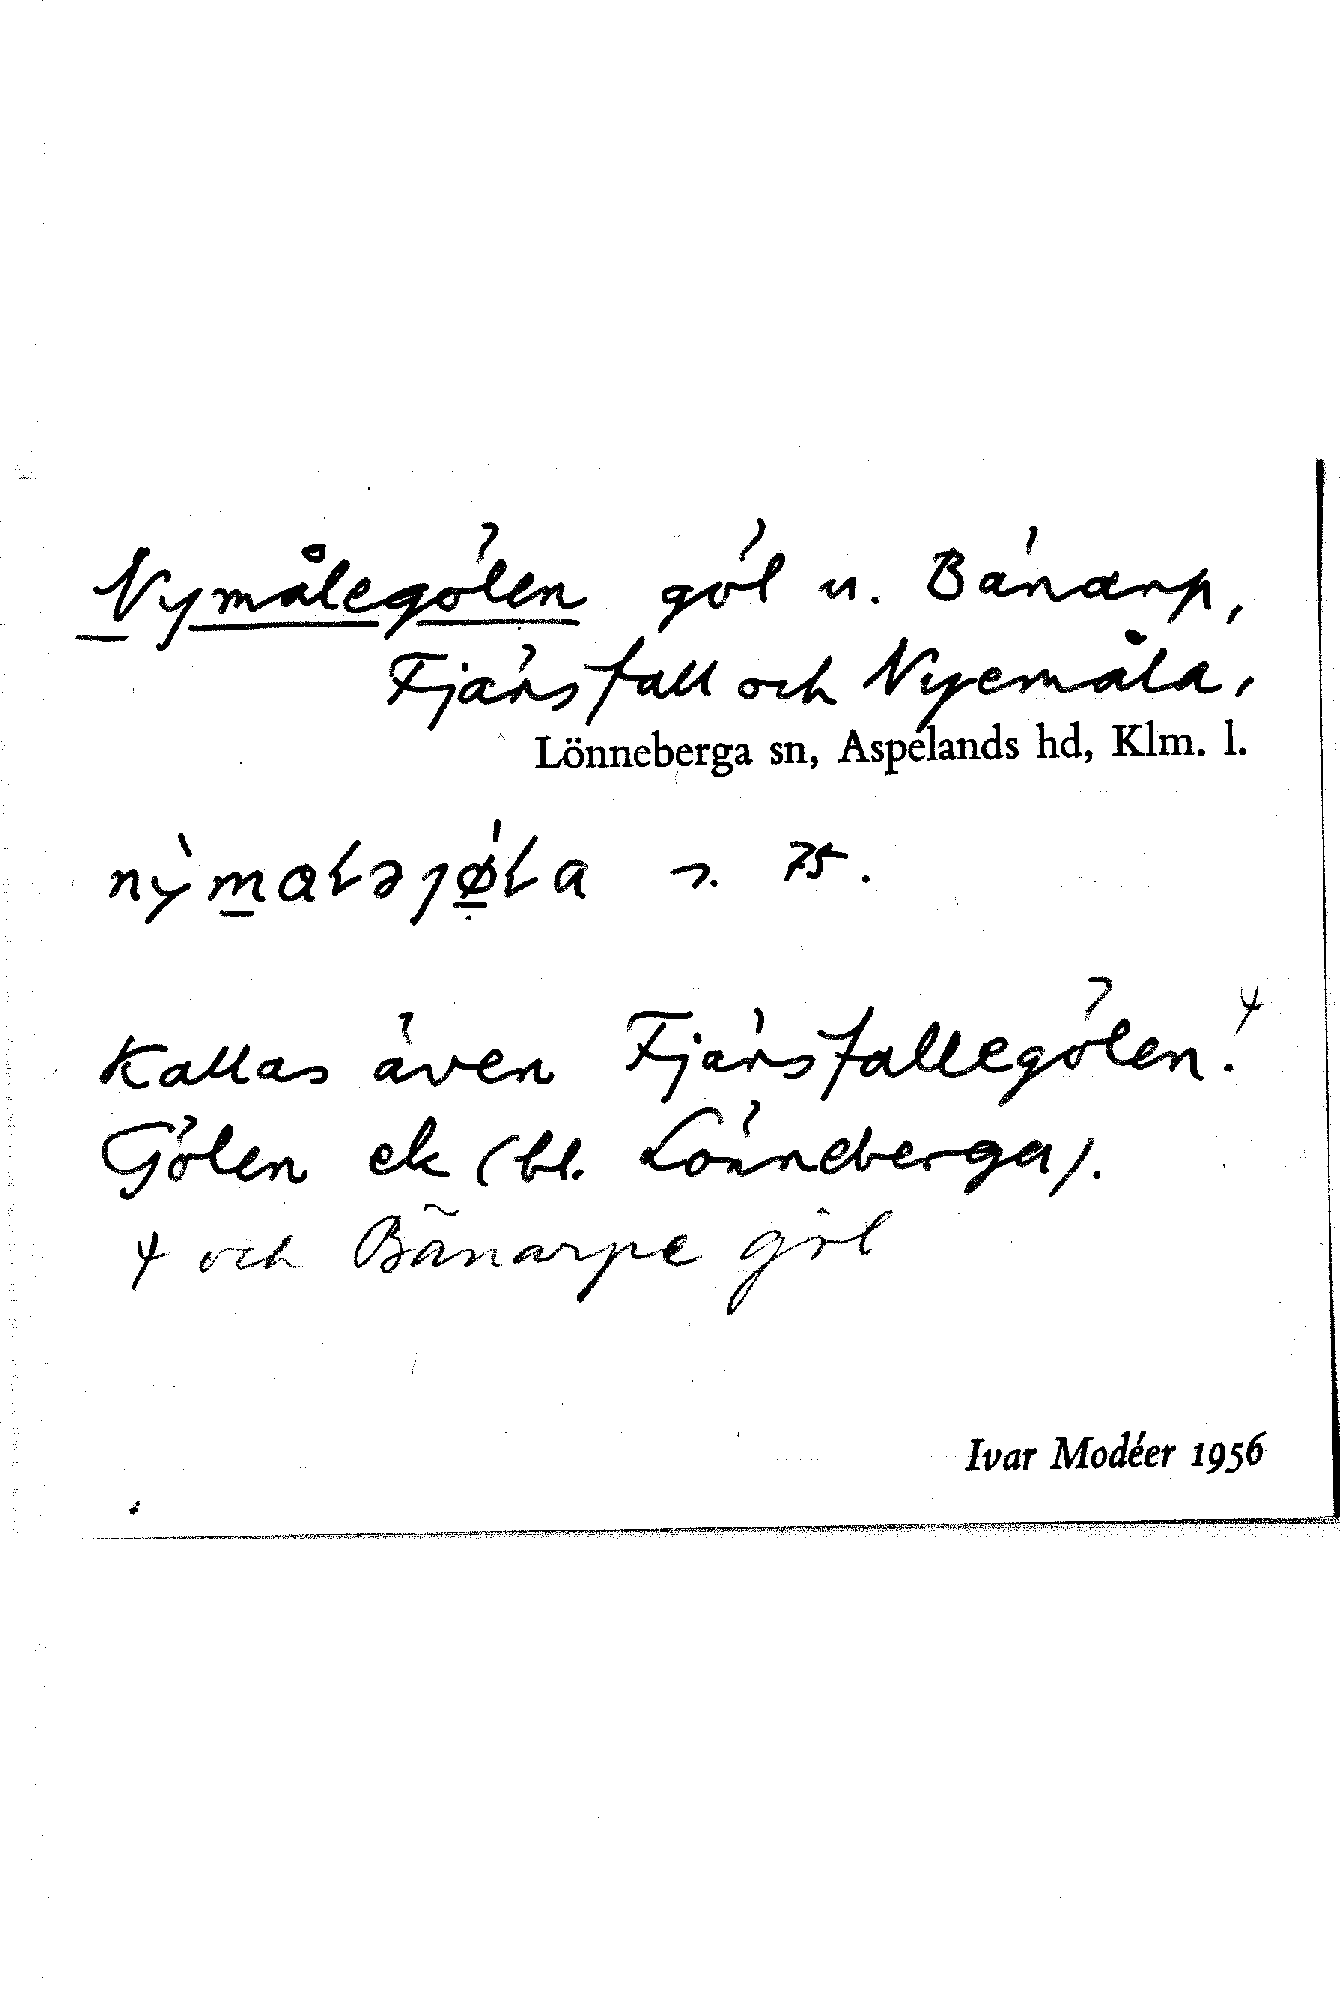 Nymålegölen göl u. Bänarp,
Fjärsfall och Nyemåla,
Lönneberga sn, Aspelands hd, Klm. l.
75.
Kallas även Fjärsfallegölen.⁴
Gölen ek (bl. Lönneberga).
⁴ och Bänarpe göl
Ivar Modéer 1956